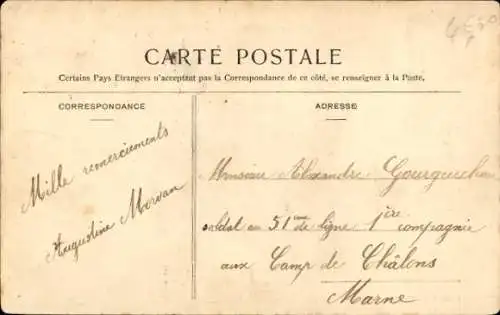 CARTE POSTALE
Certains Pays Etrangers n'acceptant pas la Correspondance de ce côté, se renseigner à la Poste.
CORRESPONDANCE
ADRESSE
Mille remerciements
Augustine Morvan
Monsieur Alexandre
soldat au 51me de ligne 1ère compagnie
aux Camp de Châlons
Marne